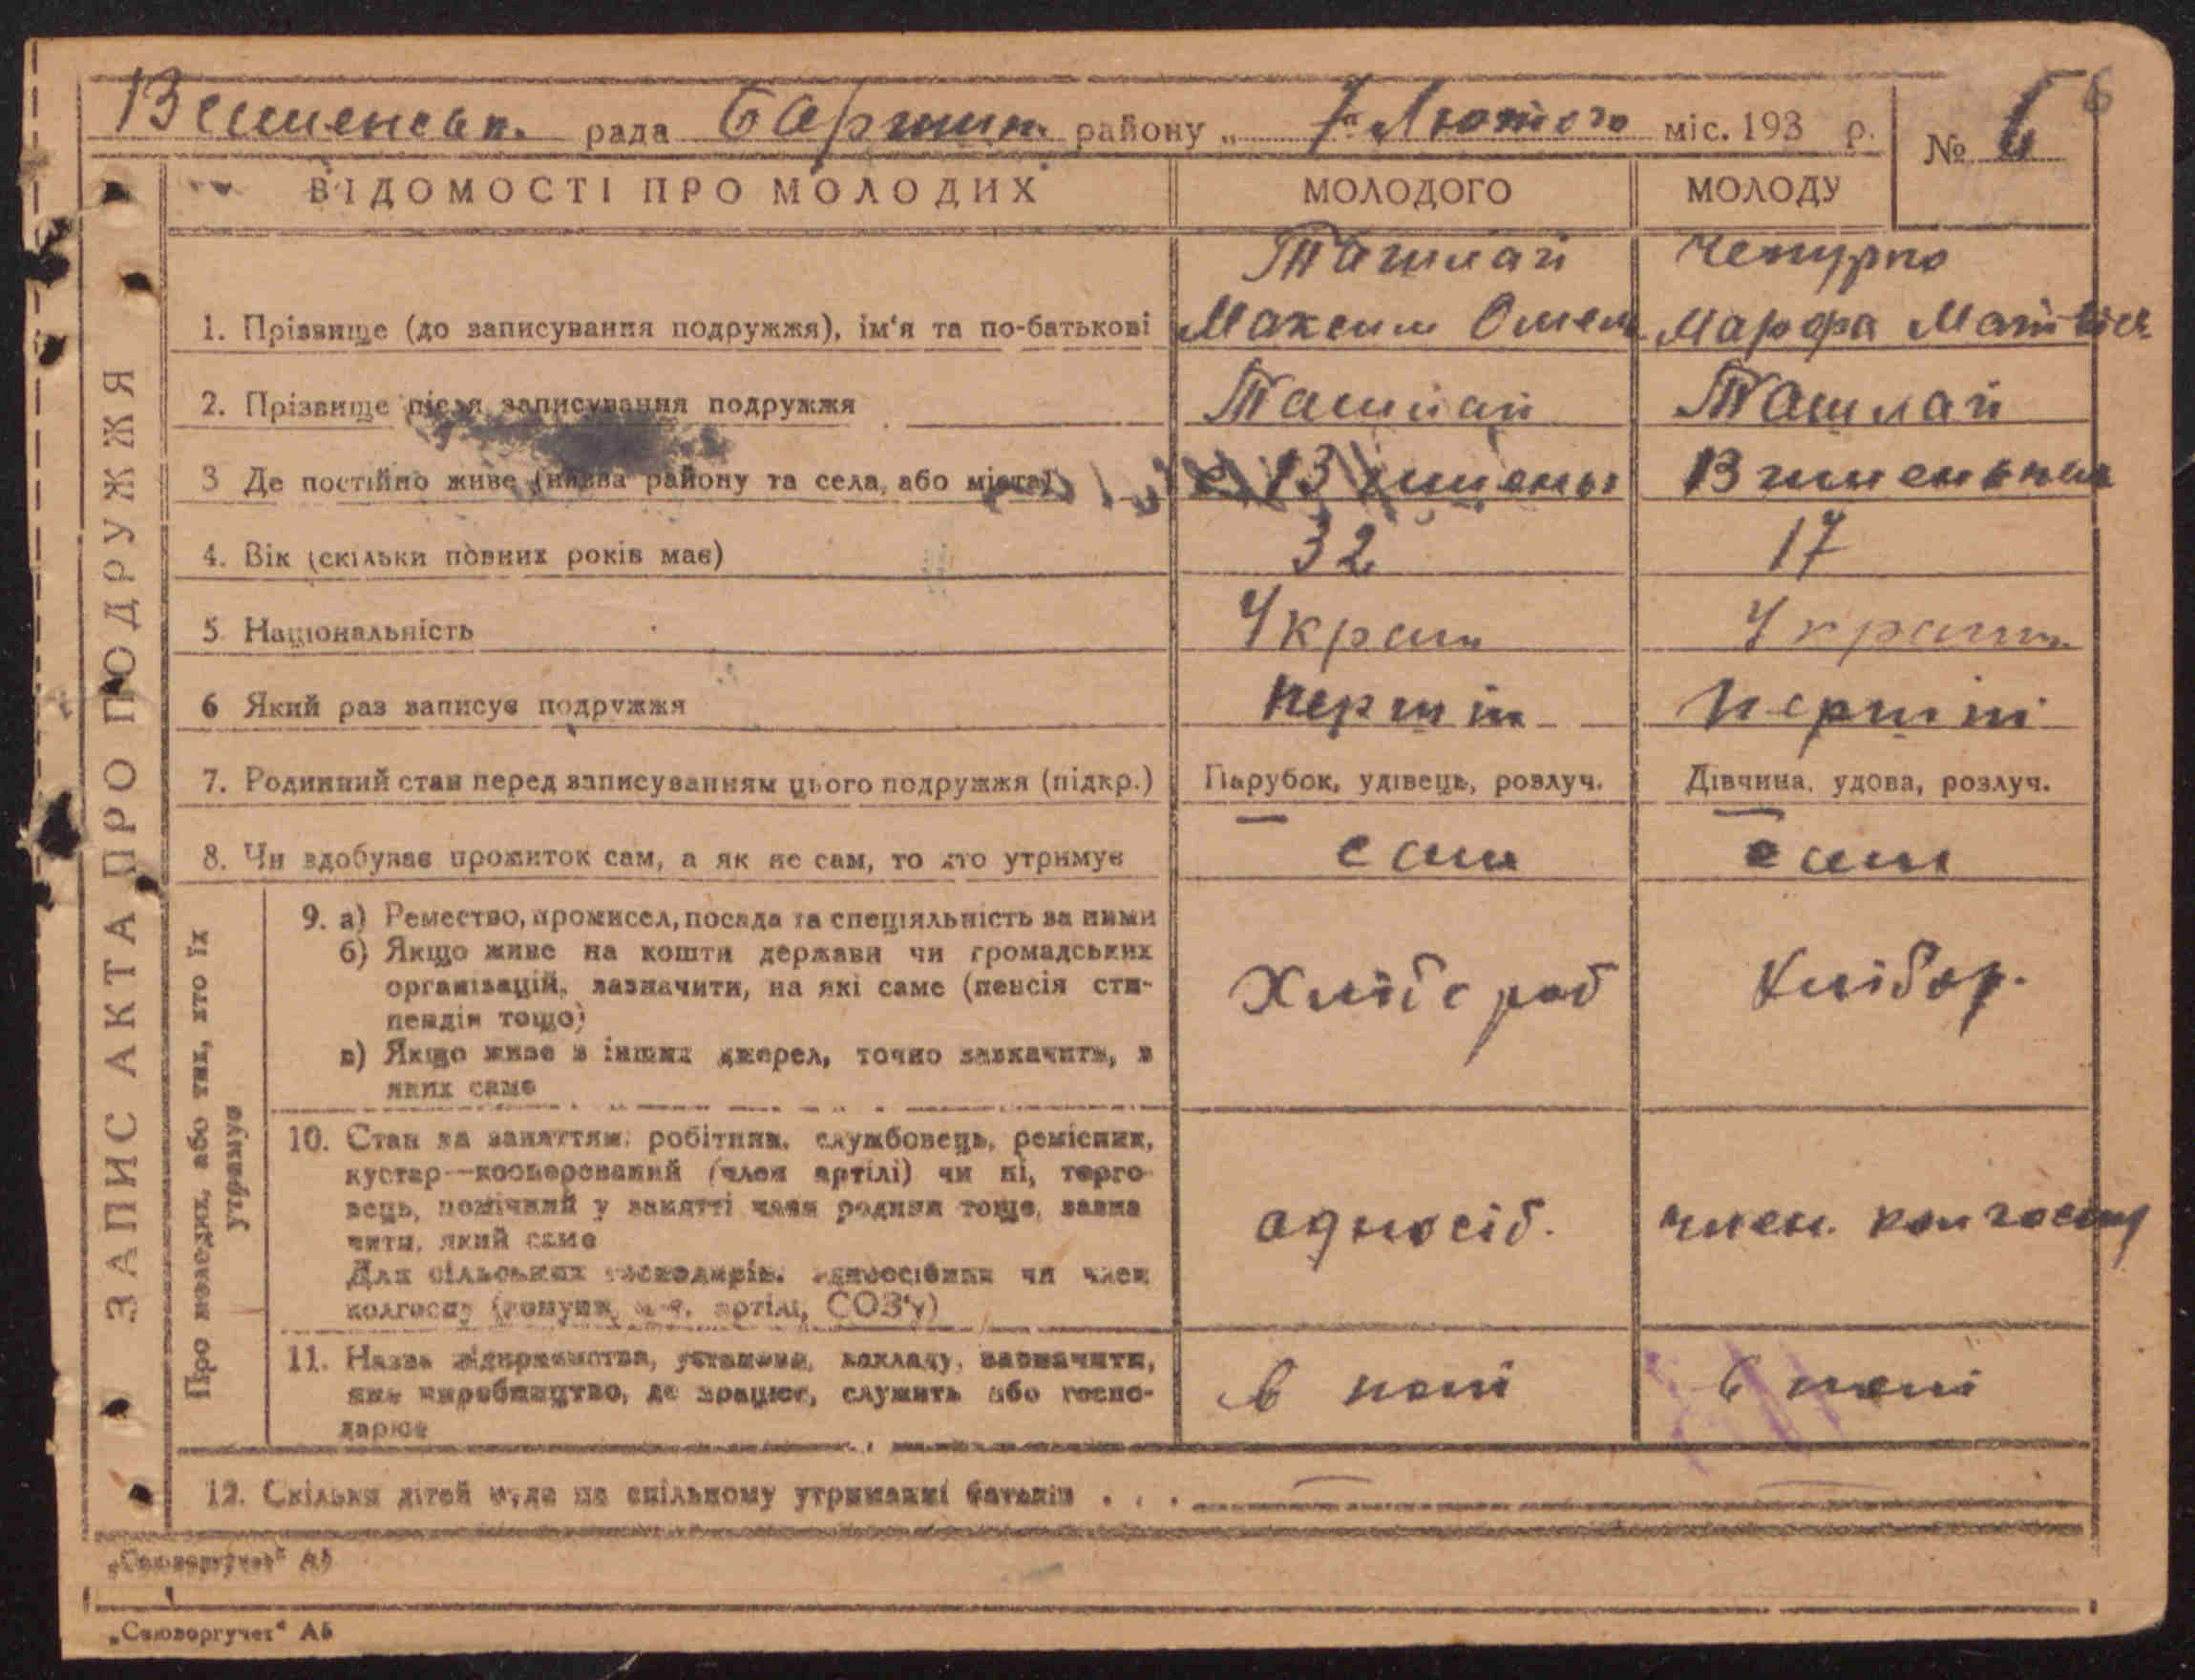 рада районy „ 7 Лютого міс. 193 р. № 6
6
ВІДОМОСТІ ПРО МОЛОДИХ МОЛОДОГО МОЛОДУ
ЗАПИС АКТА ПРО ПОДРУЖЖЯ
Ташлай Чепурко
1. Прізвище (до записування подружжя), ім'я та по-батькові Максим Омел Марфа Матвієв
2. Прізвище після записування подружжя Ташлай Ташлай
3 Де постійно живе (назва району та села, або міста)
4. Вік (скільки повних років має) 32 17
5 Національність Украін Украін
6 Який раз записує подружжя перший перший
7. Родинний стан перед записуванням цього подружжя (підкр.) Парубок, удівець, розлуч. Дівчина, удова, розлуч.
8. Чи здобуває прожиток сам, а як не сам, то хто утримує сам сама
Про молодих, або тих, хто їх утримує
9. а) Ремество, промисел, посада та спеціяльність за ними
б) Якщо живе на кошти держави чи громадських
організацій, зазначити, на які саме (пенсія сти-
пендія тощо) Хлібороб Хлібор.
в) Якщо живе з інших джерел, точно зазначити, з
яких саме
10. Стан за заняттям: робітник, службовець, ремісник,
кустар—кооперований (член артілі) чи ні, торго-
вець, помічний у занятті член родини тоще, зазна
чити, який саме односіб. член. колгоспу
Для сільських господарів: односібник чи член
колгоспу (комуни, с.-г. артілі, СОЗ'у)
11. Назва підприємства, установи, закладу, зазначити,
яке виробництво, де працює, служить або госпо- в полі в полі
дарює
12. Скільки дітей буде на спільному утриманні батьків . . . — —
„Союзоргучет“ А5
„Союзоргучет“ А5